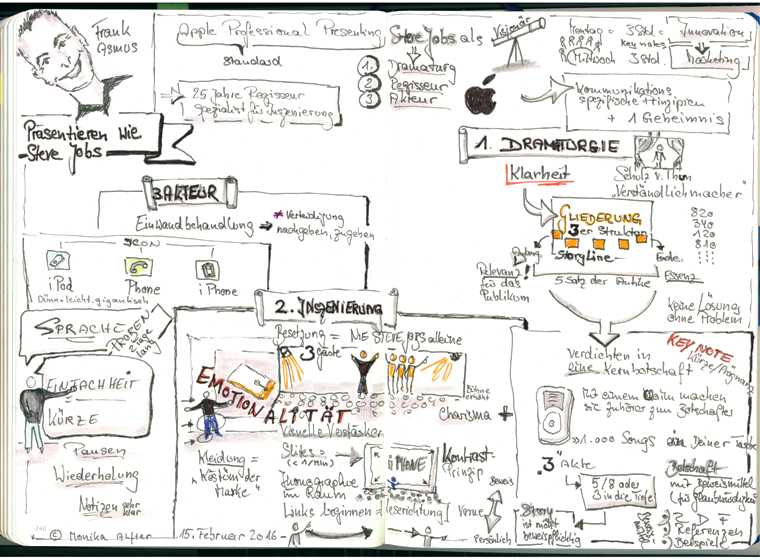 Frank
Asmus
Präsentieren wie
Steve Jobs
Apple Professional Presenting
Standard
25 Jahre Regisseur
spezialist für Inszenierung
Steve Jobs als
Visionär
1. Dramaturg
2. Regisseur
3. Akteur
Montag = 3 Std.
Keynotes
Mittwoch 3 Std.
Innovation
Marketing
Kommunikations
spezifische Prinzipien
+ 1 Geheimnis
1. DRAMATURGIE
Klarheit
Schulz v. Thun
"Verständlichmacher"
GLIEDERUNG
3er Struktur
Anfang
Ende
StoryLine
5 Satz der Antike
Relevanz!
für das
Publikum
820
340
120
810
Essenz
Keine Lösung
ohne Problem
3. AKTEUR
Einwandbehandlung
* Verteidigung
nachgeben, zugeben
ICON
iPod
Phone
iPhone
Dünn, leicht, gigantisch
SPRACHE
PROBEN
Tage
lang
EINFACHHEIT
KÜRZE
Pausen
Wiederholung
Notizen sehr
klar
2. INSZENIERUNG
Besetzung = NIE STEVE JOBS alleine
3 Gäste
EMOTIONALITÄT
Bühne
erhöht
Charisma +
Visuelle Verstärker
Slides =
(< 1/Min)
Kleidung =
"Kostüm der
Marke"
iPHONE
Kontrast-
Prinzip
im Raum
Links beginnen
Leserichtung!
Beweis
Venue
Persönlich
Verdichten in
eine Kernbotschaft
KEY NOTE
Kürze/Prägnanz
Mit einem Claim machen
sie Zuhörer zum Botschafter
>> 1.000 Songs in Deiner Tasche
"3" Akte
5/8 oder
3 in die Tiefe
Story
ist nicht
beweispflichtig
Botschaft
mit Beweismittel
(für Glaubwürdigkeit)
Referenzen
Beispiele
© Monika Alfter
15. Februar 2016